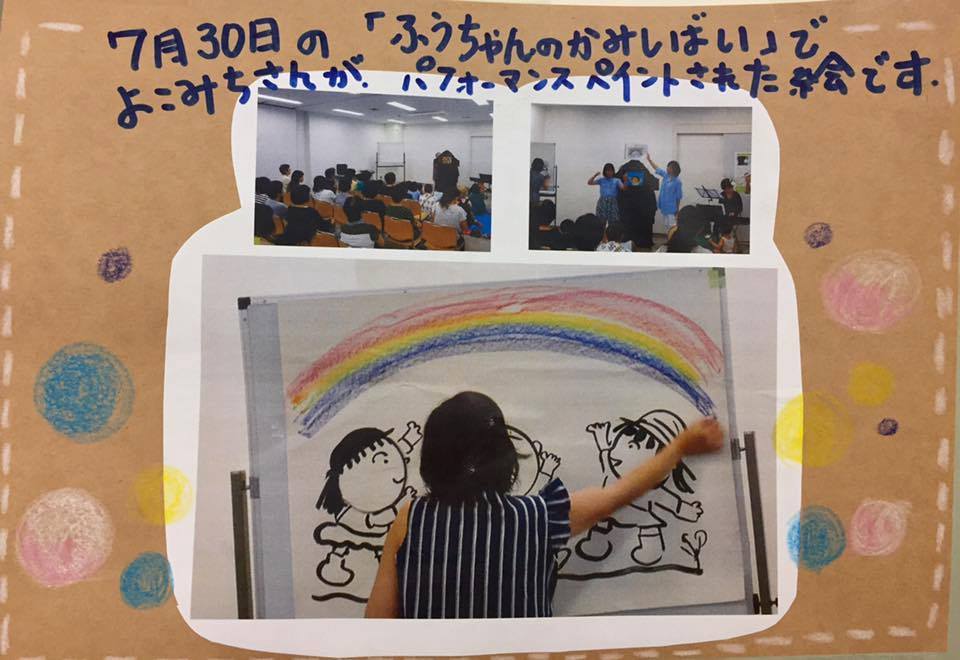 7月30日の「ふうちゃんのかみしばい」で
よこみちさんが、パフォーマンスペイントされた絵会です.